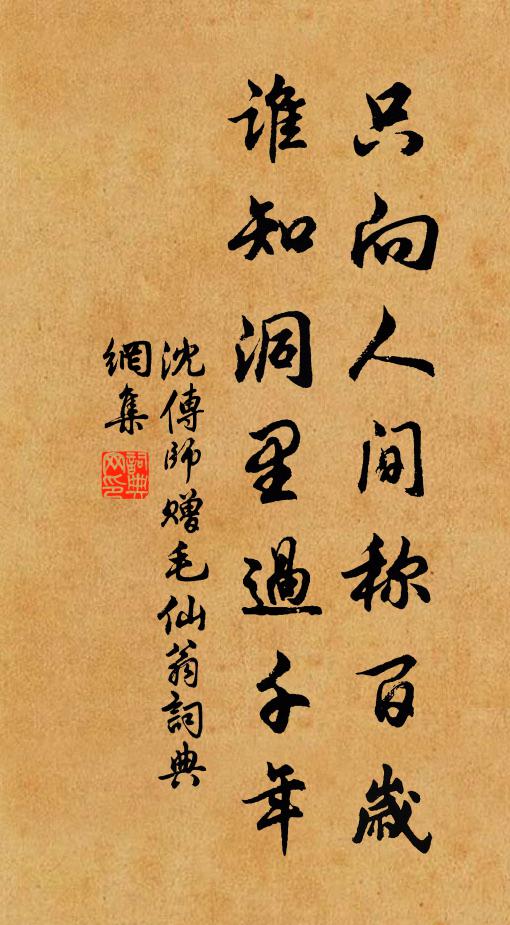 只向人间称百歲
谁知洞里過千年
沈傳師赠毛仙翁詞典
網集
詞典
网印